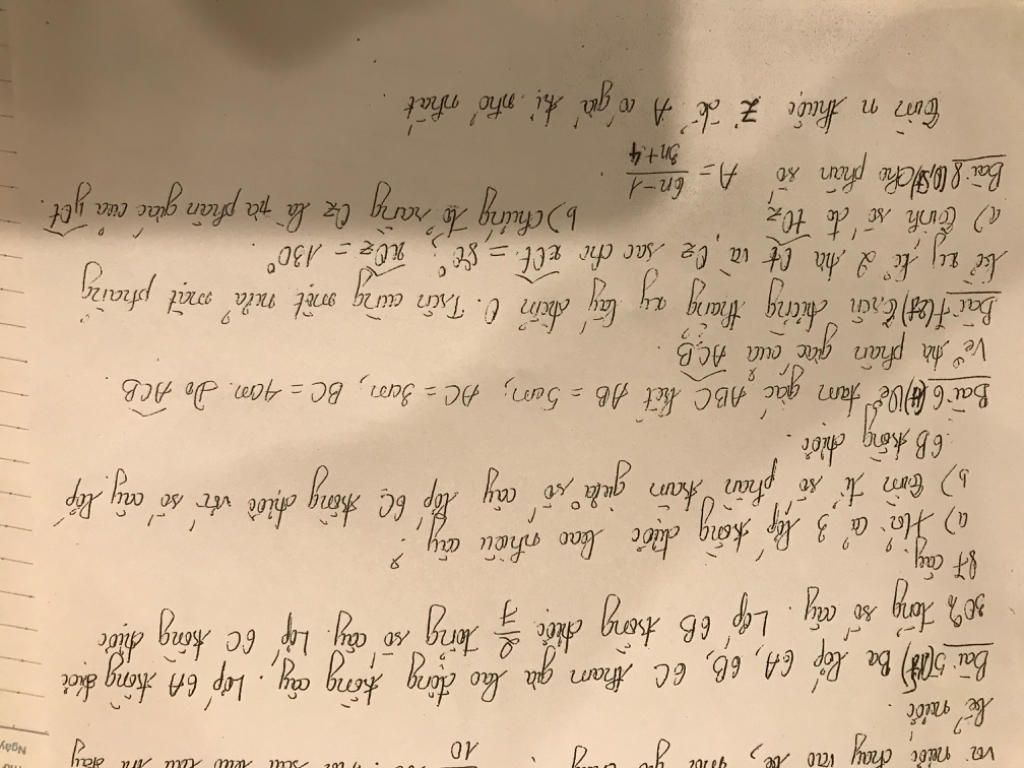 vòi nước chảy vào bể, mỗi giờ
10
bể nước.
Bài 5 Ba lớp 6A, 6B, 6C tham gia lao động trồng cây. Lớp 6A trồng được
30% tổng số cây. Lớp 6B trồng được 2/7 tổng số cây. Lớp 6C trồng được
87 cây
a) Hỏi cả 3 lớp trồng được bao nhiêu cây?
b) Tìm tỉ số phần trăm giữa số cây lớp 6C trồng được với số cây lớp
6B trồng được.
Bài 6 Vẽ tam giác ABC biết AB = 5cm; AC = 3cm; BC = 4cm. Đo ACB
Vẽ tia phân giác của ACB.
Bài 7 Trên đường thẳng xy lấy điểm O. Trên cùng một nửa mặt phẳng
bờ xy kẻ 2 tia Ot và Oz sao cho xOt = 80°; xOz = 130°.
a) Tính số đo tOz b) Chứng tỏ rằng Oz là tia phân giác của yOt.
Bài 8 Cho phân số A = 6n-1/3n+4
Tìm n thuộc Z để A có giá trị nhỏ nhất.
Ngày